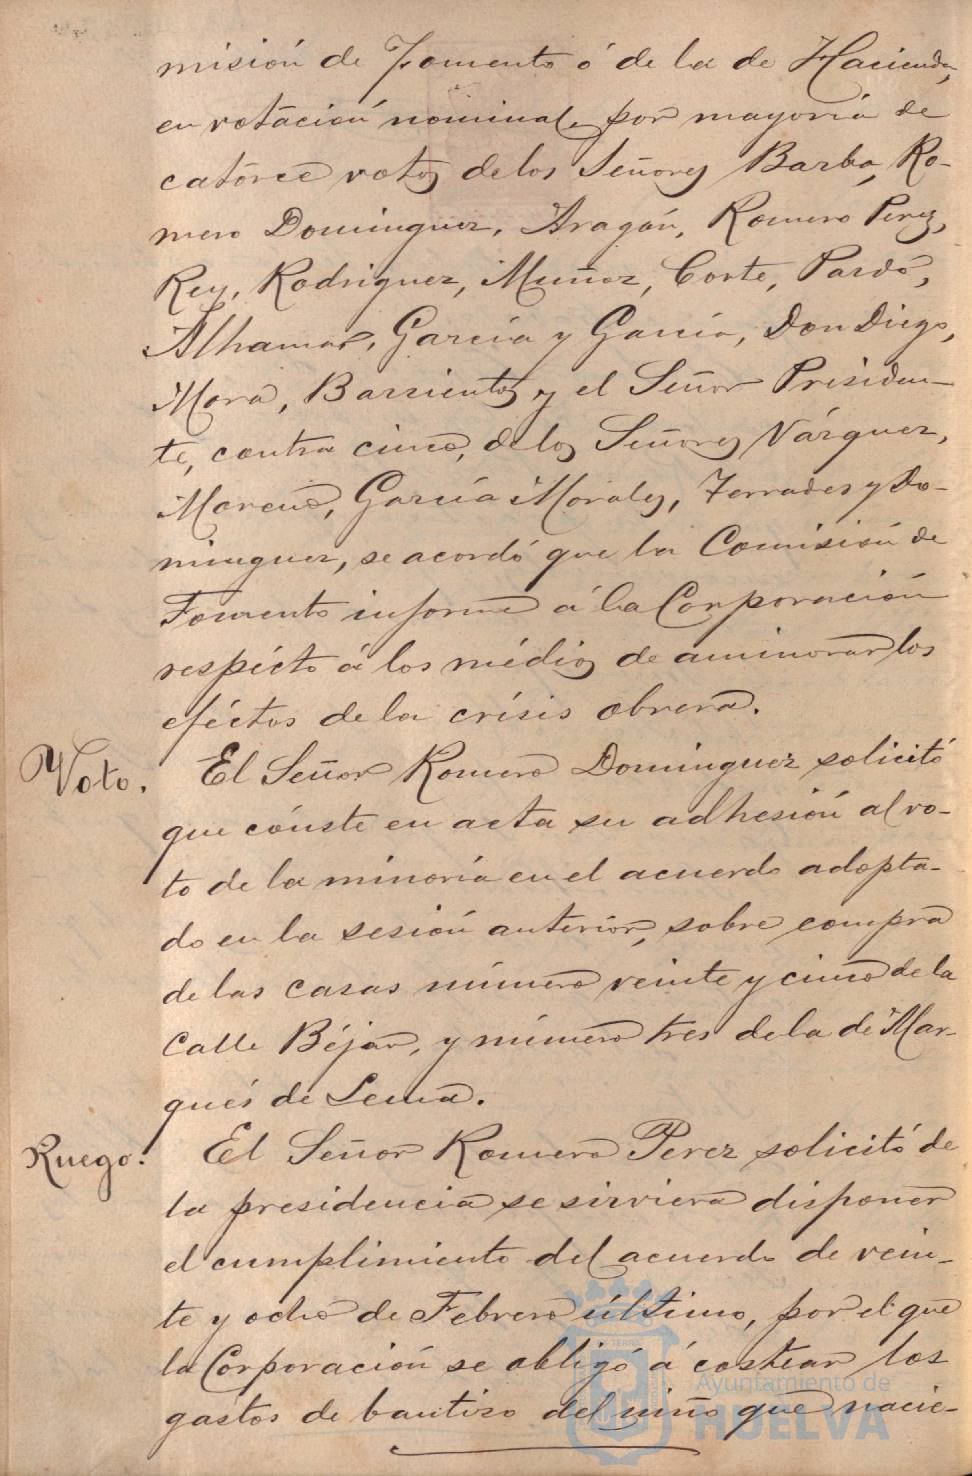 misión de Fomento ó de la de Hacienda,
en votación nominal, por mayoria de
catorce votos de los Señores Barba, Ro-
mero Dominguez, Aragón, Romero Perez,
Rey, Rodriguez, Muñoz, Corte, Pardo,
Alhamar, García y García, Don Diego,
Mora, Barrientos y el Señor Presiden-
te, contra cinco, de los Señores Vázquez,
Moreno, García Morales, Terrades y Do-
minguez, se acordó que la Comisión de
Fomento informe á la Corporación
respécto á los médios de aminorar los
eféctos de la crísis obrera.
Voto. El Señor Romero Dominguez solicitó
que cónste en acta su adhesión al vo-
to de la minoría en el acuerdo adopta-
do en la sesión anterior, sobre compra
de las casas número veinte y cinco de la
Calle Béjar, y número tres de la de Mar-
qués de Lema.
Ruego. El Señor Romero Perez solicitó de
la presidencia se sirviera disponer
el cumplimiento del acuerdo de vein-
te y ocho de Febrero último, por el que
la Corporación se obligó á costear los
gastos de bautizo del niño que nacie-
Ayuntamiento de
HUELVA